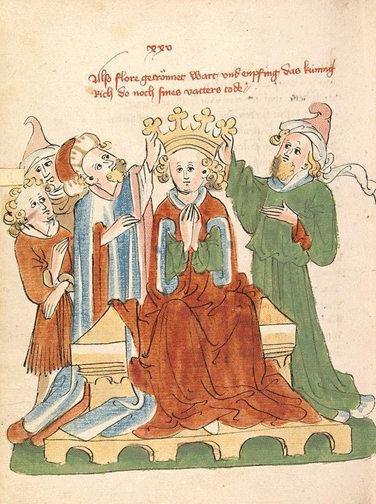 xxv
Also flore getrönnet wart vnd enpfing das kúnnig
Rich do noch sines vatters tode